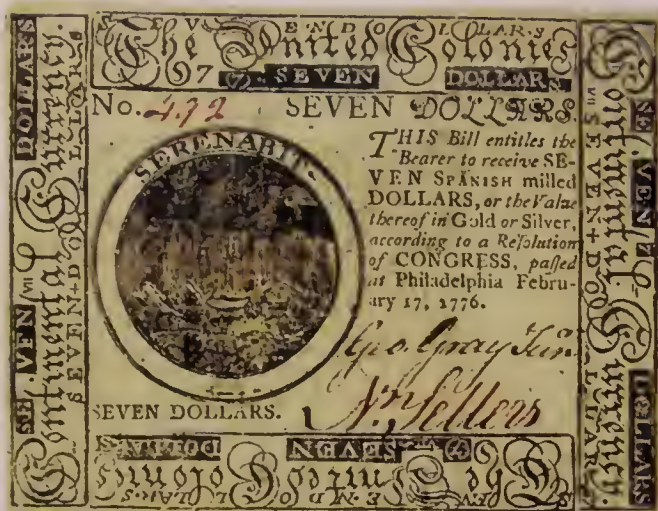 SEVEN DOLLARS
The United Colonies
7 (7) SEVEN DOLLARS
No. 472 SEVEN DOLLARS
SERENABIT.
THIS Bill entitles the
Bearer to receive SE-
VEN SPANISH milled
DOLLARS, or the Value
thereof in Gold or Silver,
according to a Reſolution
of CONGRESS, paſſed
at Philadelphia Febru-
ary 17, 1776.
Geo. Gray Jun
Nn Sellers
SEVEN DOLLARS.
SE VEN VII DOLLARS
Continental Currency
SEVEN DOLLARS
SE VEN 7 DOLLARS
Continental Currency
VII SEVEN DOLLARS
SEVEN DOLLARS
The United Colonies
SEVEN DOLLARS